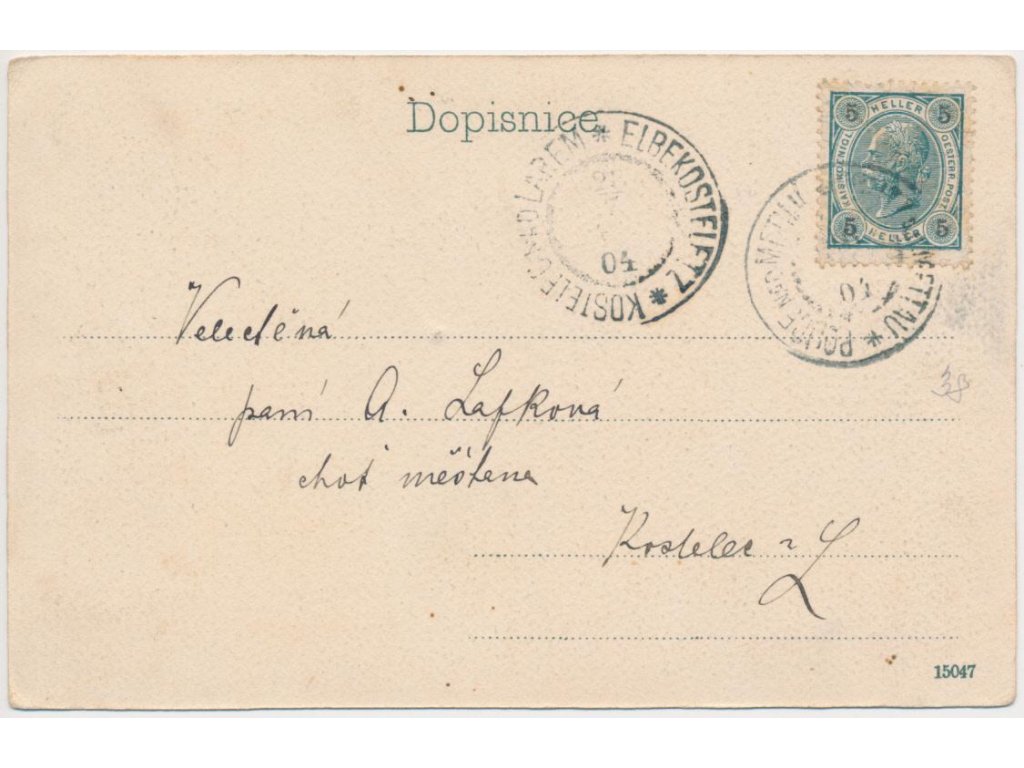 Dopisnice
KOSTELEC NAD LABEM * ELBEKOSTELETZ *
04
5 HELLER 5
KAIS. KOENIGL. OESTERR. POST.
5 HELLER 5
POLICE NAD METUJÍ
METTAU *
04
Veletěná
paní A. Lafková
choť měšťana
Kostelec n L
38
15047